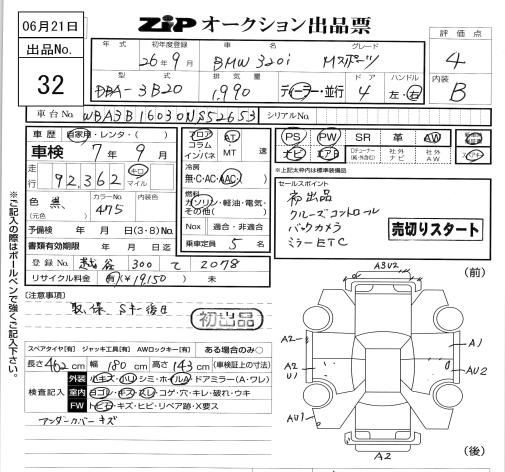 06月21日
ZiP オークション出品票
出品No.
32
年式 初年度登録 車名 グレード 評価点
26年9月 BMW 320i Mスポーツ 4
型式 排気量 ドア ハンドル 内装
DBA-3B20 1,990 ディーラー・並行 4 左・右 B
車台No. WBA3B16030NS52653 シリアルNo.
車歴 自家用・レンタ・( )
フロア コラム インパネ AT・MT 速
PS PW SR 革 AW
ナビ エアB Dチューナー(純・外含む) 社外ナビ 社外AW
車検 7年 9月
冷房 無・C・AC・AAC
※上記太枠内は標準装備品
走行 92,362 キロ マイル
燃料 ガソリン・軽油・電気・その他( )
セールスポイント
初出品
クルーズコントロール
バックカメラ
ミラーETC
売切りスタート
色 黒 (元色) カラーNo. 475 内装色
Nox 適合・非適合
予備検 年 月 日(3・8)No.
書類有効期限 年 月 日迄
乗車定員 5 名
登録No. 越谷 300 て 2078
リサイクル料金 有(¥19,150) 未
(注意事項)
取、保、Sキー後日
初出品
スペアタイヤ[有] ジャッキ工具[有] AWロックキー[有] ある場合のみ○
長さ 462 cm 幅 180 cm 高さ 143 cm (車検証上の寸法)
検査記入
外装 小キズ・小凹・シミ・ホイルA・ドアミラー(A・ワレ)
室内 ヨゴレ・キズ・スレ・コゲ・穴・キレ・破れ・ウキ
FW トビ石・キズ・ヒビ・リペア跡・X要ス
アンダーカバーキズ
※ご記入の際はボールペンで強くご記入下さい。
(前)
A3U2
A2
A1
A2
U1
AU2
AU1
A2
(後)